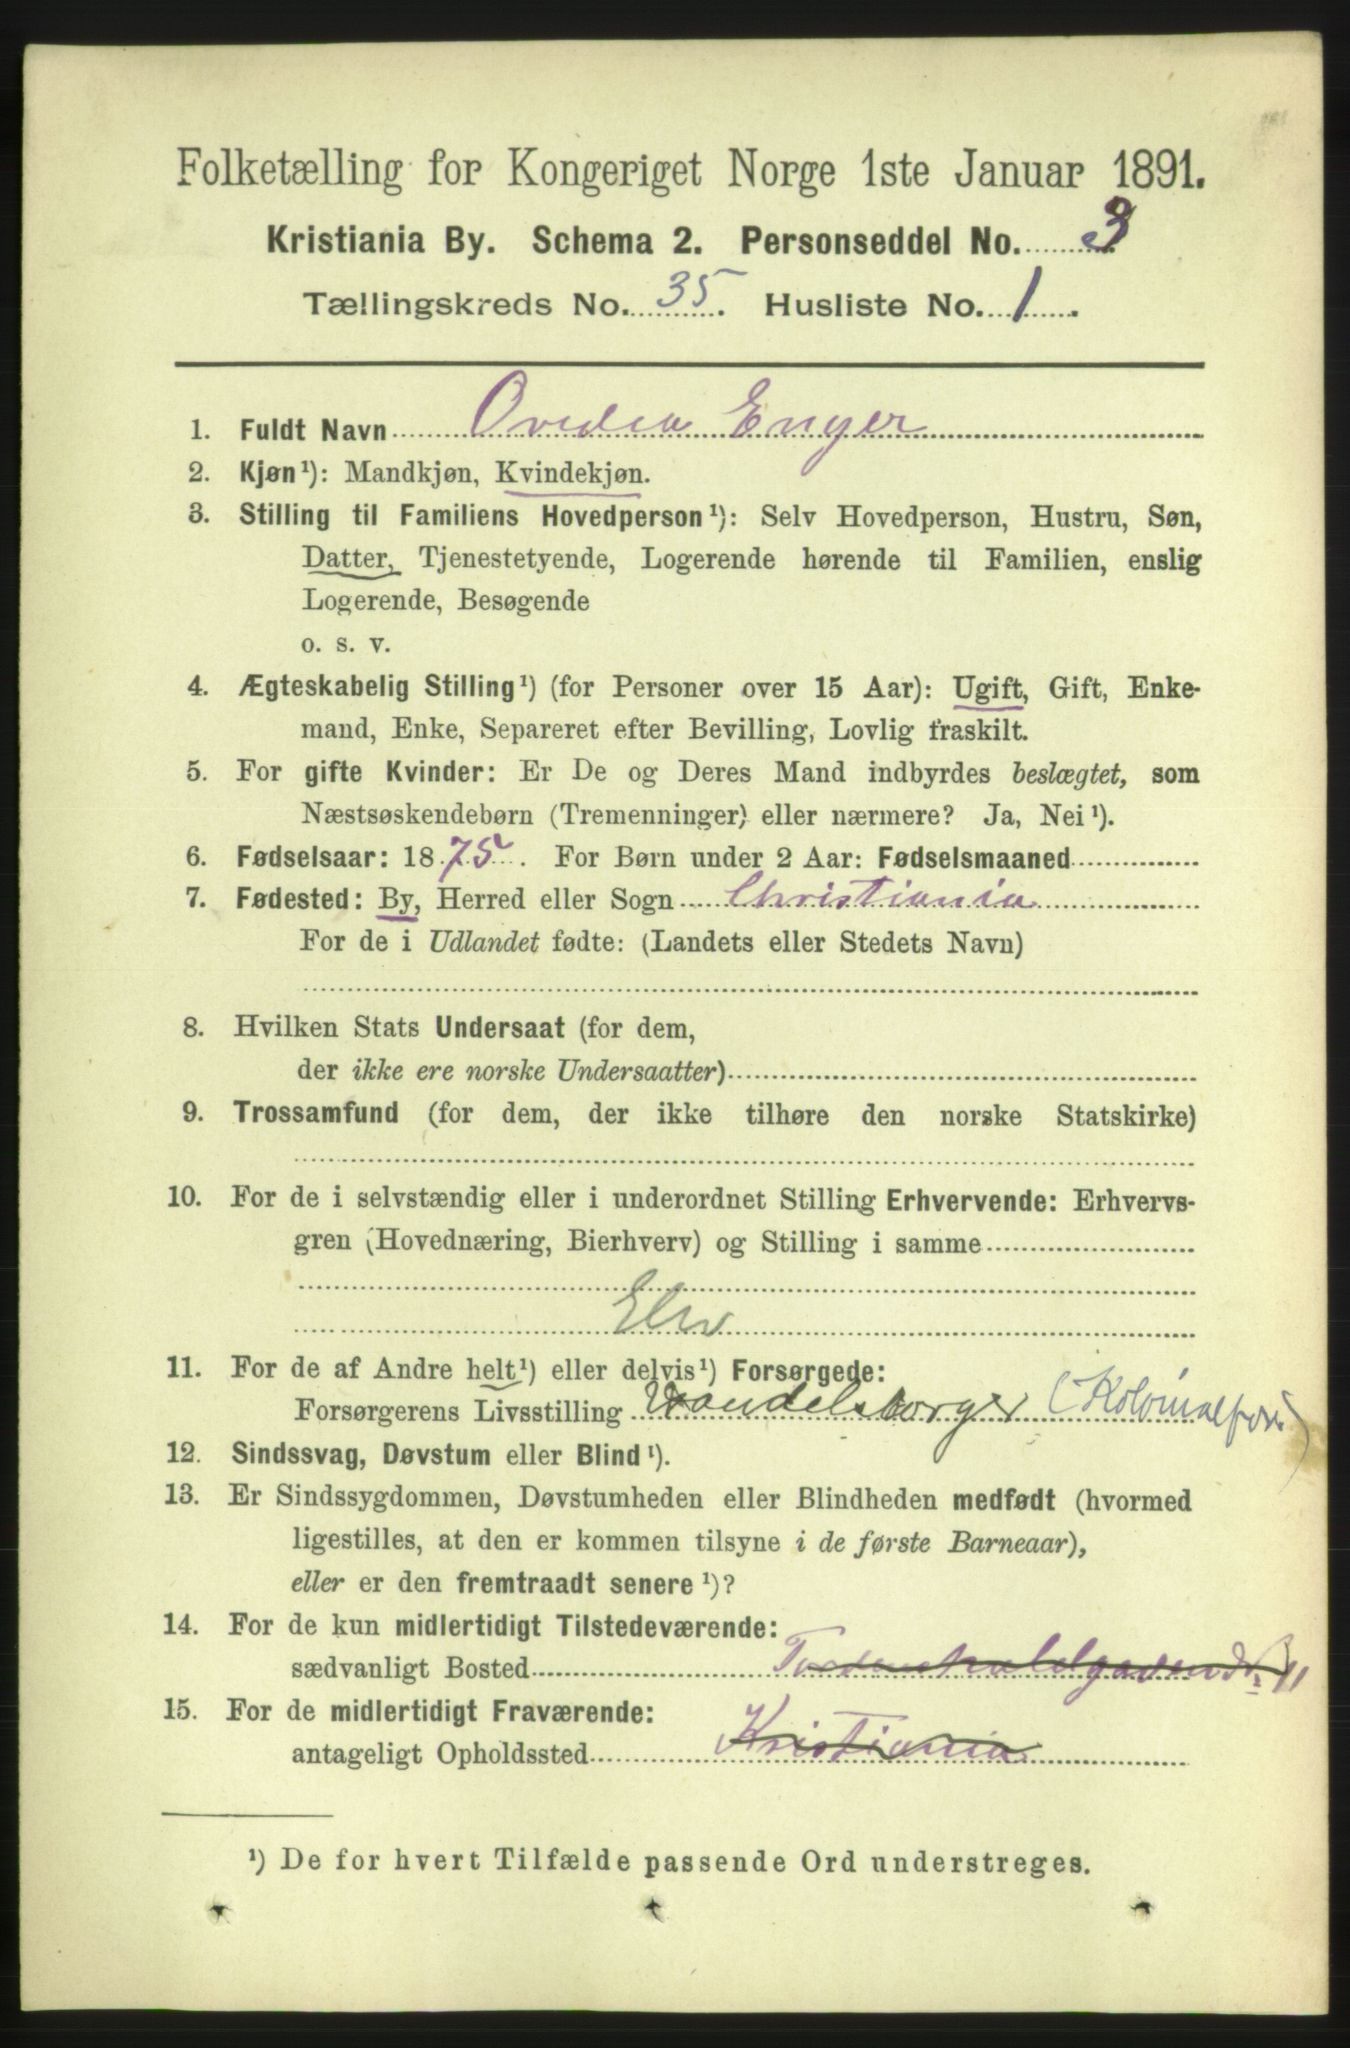 Folketælling for Kongeriget Norge 1ste Januar 1891.
Kristiania By. Schema 2. Personseddel No. 3
Tællingskreds No. 35. Husliste No. 1.
1. Fuldt Navn Ovedia Enger
2. Kjøn¹): Mandkjøn, Kvindekjøn.
3. Stilling til Familiens Hovedperson¹): Selv Hovedperson, Hustru, Søn,
Datter, Tjenestetyende, Logerende hørende til Familien, enslig
Logerende, Besøgende
o. s. v.
4. Ægteskabelig Stilling¹) (for Personer over 15 Aar): Ugift, Gift, Enke-
mand, Enke, Separeret efter Bevilling, Lovlig fraskilt.
5. For gifte Kvinder: Er De og Deres Mand indbyrdes beslægtet, som
Næstsøskendebørn (Tremenninger) eller nærmere? Ja, Nei¹).
6. Fødselsaar: 1875. For Børn under 2 Aar: Fødselsmaaned
7. Fødested: By, Herred eller Sogn Christiania
For de i Udlandet fødte: (Landets eller Stedets Navn)
8. Hvilken Stats Undersaat (for dem,
der ikke ere norske Undersaatter)
9. Trossamfund (for dem, der ikke tilhøre den norske Statskirke)
10. For de i selvstændig eller i underordnet Stilling Erhvervende: Erhvervs-
gren (Hovednæring, Bierhverv) og Stilling i samme
Elev
11. For de af Andre helt¹) eller delvis¹) Forsørgede:
Forsørgerens Livsstilling Handelsborger (Kolonialforr)
12. Sindssvag, Døvstum eller Blind¹).
13. Er Sindssygdommen, Døvstumheden eller Blindheden medfødt (hvormed
ligestilles, at den er kommen tilsyne i de første Barneaar),
eller er den fremtraadt senere¹)?
14. For de kun midlertidigt Tilstedeværende:
sædvanligt Bosted Tordenskoldgaden No 11
15. For de midlertidigt Fraværende:
antageligt Opholdssted Kristiania
¹) De for hvert Tilfælde passende Ord understreges.